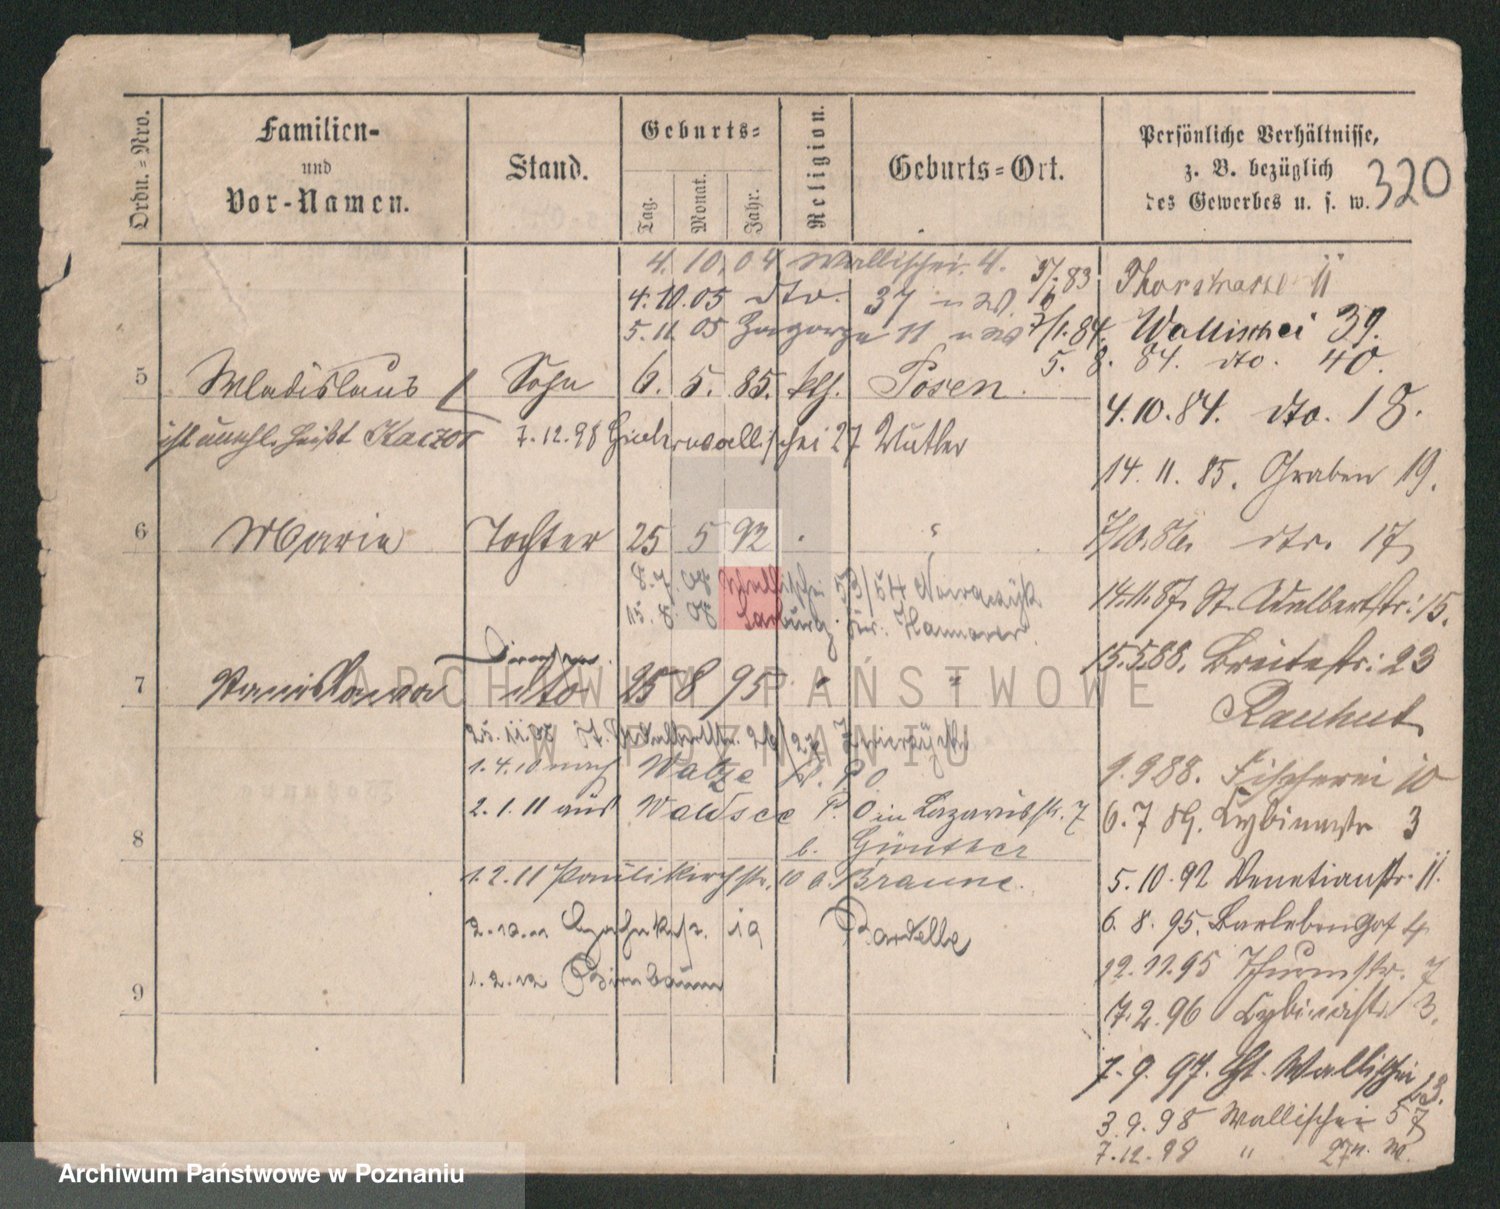 Ordn.=Nro.
Familien-
und
Vor-Namen.
Stand.
Geburts=
Tag.
Monat.
Jahr.
Religion.
Geburts=Ort.
Persönliche Verhältnisse,
z. B. bezüglich
des Gewerbes u. s. w.
320
4. 10. 04 Wallischei. 4.
4. 10. 05 dto. 37 n W.
5. 11. 05 Zagorze 11 n W
5 Wladislaus Sohn 6. 5. 85. kth. Posen.
heißt Kaczor 7. 12. 98 27 Mutter
6 Marie Tochter 25 5 92 " "
8. 7. 08 Wallischei 53/54 Nowaczyk
15. 8. 08 Harburg Hannover.
7 Stanislawa dto 25 8 95 " "
25. 11. 08 St. Adalbertstr. 26/27
1. 4. 10 nach Watze
2. 1. 11 aus Waldsee P. O in Lazarusstr. 7
8 b. Günther
1. 2. 11 Paulikirchstr. 10 a. Braune.
19 Bardelle
1. 2. 12 Birnbaum
9
83 Thorstrasse 11
7/1. 84. Wallischei 39.
5. 8. 84. dto. 40.
4. 10. 84. dto. 18.
14. 11. 85. Graben 19.
7/10. 86. dto. 17
14. 11. 87. St. Adalbertstr: 15.
15. 5. 88. Breitestr: 23
Rauhut
1. 9 88. Fischerei 10
6. 7 89. Cybinastr 3
5. 10. 92 Venetianstr. 11.
6. 8. 95. 4
12. 11. 95 Thurmstr. 7
7. 2. 96 Cybinastr 3.
7. 9. 97. Wallischei
3. 9. 98 Wallischei 57
7. 12. 98 " 27 n. W.
ARCHIWUM PAŃSTWOWE
W POZNANIU
Archiwum Państwowe w Poznaniu